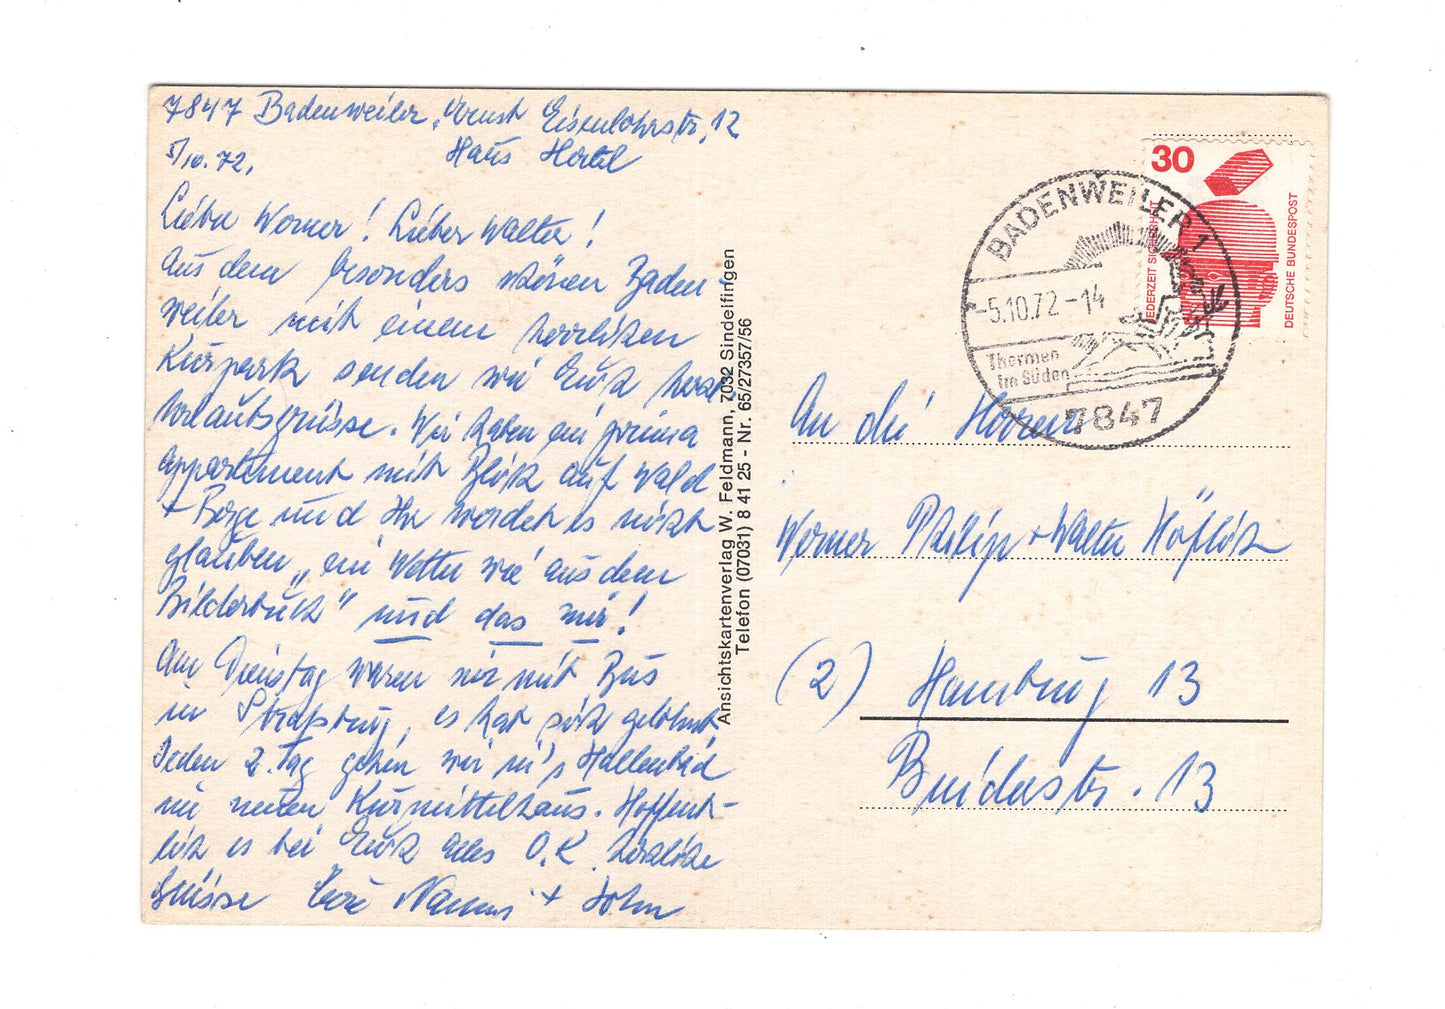 7847 Badenweiler, Ernst Eisenlohrstr. 12
Haus Hertel
5/10. 72.
Lieber Werner! Lieber Walter!
Aus dem besonders schönen Baden-
weiler mit einem herrlichen
Kurpark senden wir Euch herzl.
Urlaubsgrüsse. Wir haben ein prima
Appartement mit Blick auf Wald
+ Berge und Ihr werdet es nicht
glauben „ein Wetter wie aus dem
Bilderbuch" und das wir!
Am Dienstag waren wir mit Bus
in Straßburg, es hat sich gelohnt.
Jeden 2. Tag gehen wir in's Hallenbad
im neuen Kurmittelhaus. Hoffent-
lich es bei Euch alles O.K. herzliche
Grüsse Eure Nanni + John
Ansichtskartenverlag W. Feldmann, 7032 Sindelfingen
Telefon (07031) 8 41 25 - Nr. 65/27357/56
30
JEDERZEIT SICHERHEIT
DEUTSCHE BUNDESPOST
BADENWEILER 1
-5.10.72-14
Thermen
im Süden
7847
An die Herren
Werner Philip + Walter Höflich
(2) Hamburg 13
Bundesstr. 13